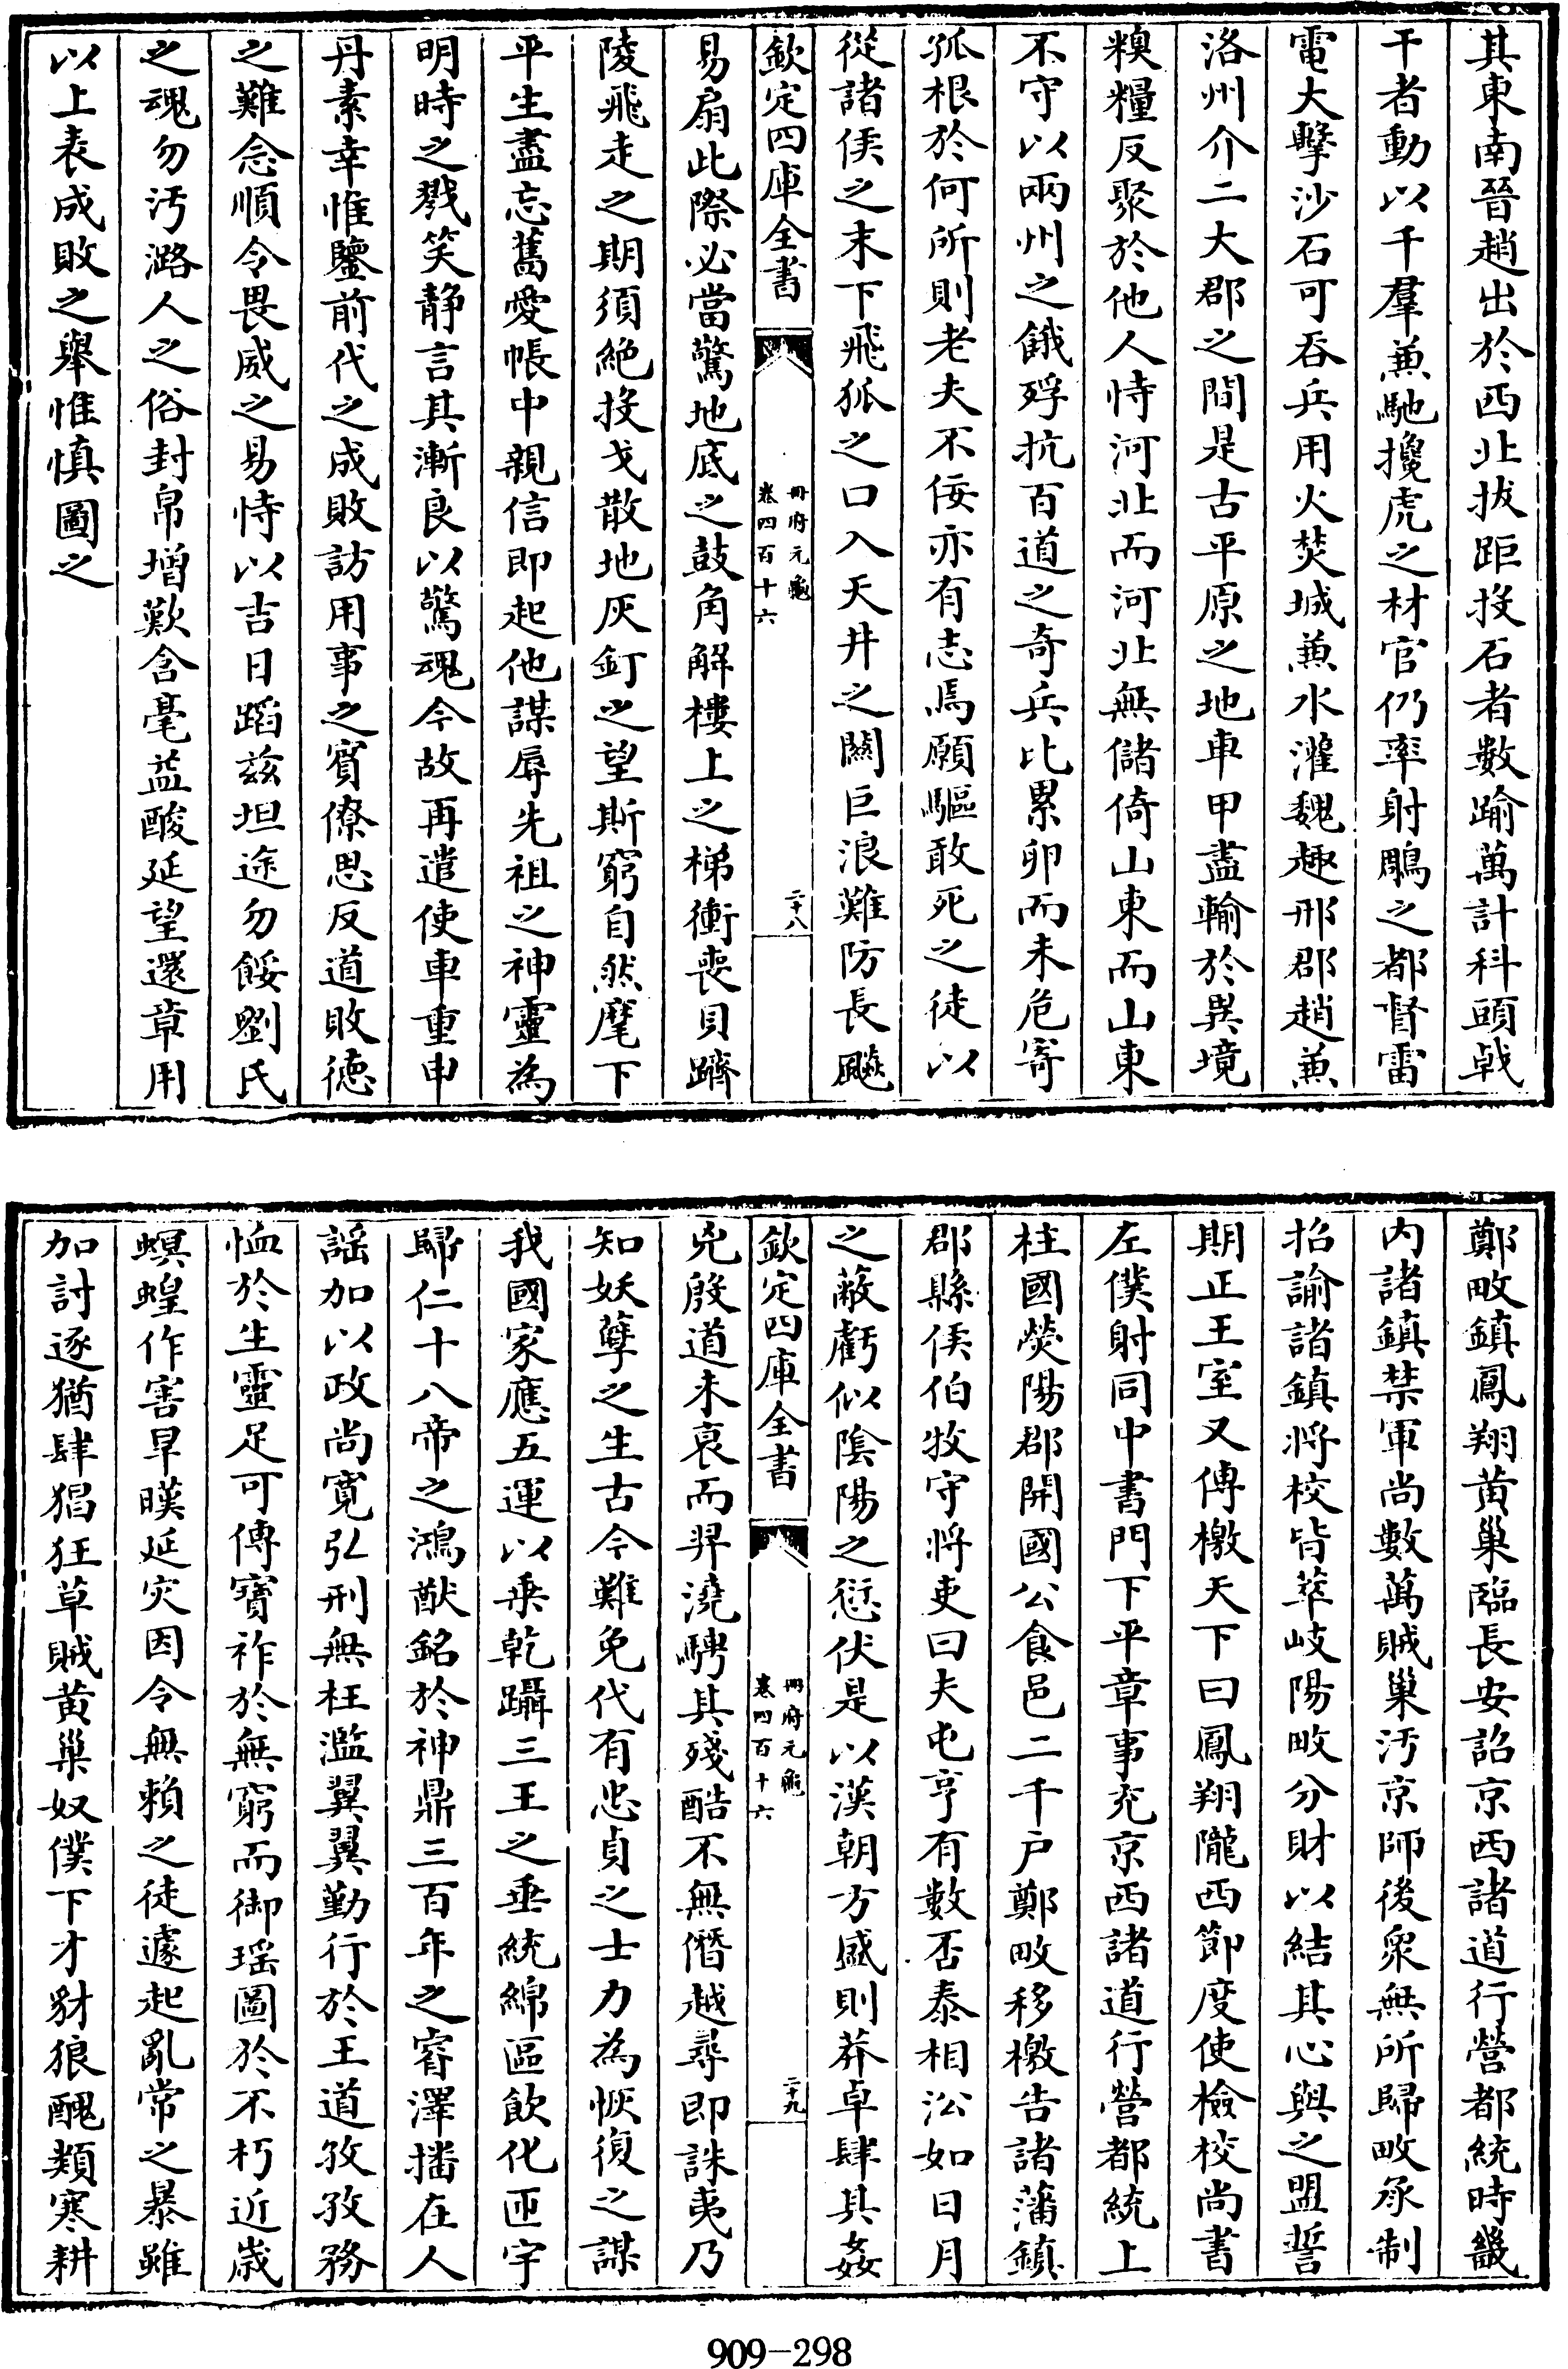 其東南晉趙出於西北拔距投石者數踰萬計科頭戟
干者動以千羣兼馳攙虎之材官仍率射鵰之都督雷
電大擊沙石可吞兵用火焚城兼水灌魏趣邢郡趙兼
洺州介二大郡之間是古平原之地車甲盡輸於異境
糗糧反聚於他人恃河北而河北無儲倚山東而山東
不守以兩州之餓殍抗百道之奇兵比累卵而未危寄
孤根於何所則老夫不佞亦有志焉願驅敢死之徒以
從諸侯之末下飛狐之口入天井之關巨浪難防長飈
欽定四庫全書
冊府元龜
卷四百十六
二十八
易扇此際必當驚地底之鼓角解樓上之梯衝喪貝躋
陵飛走之期須絶投戈散地灰釘之望斯窮自然麾下
平生盡忘舊愛帳中親信即起他謀辱先祖之神靈為
明時之戮笑静言其漸良以驚魂今故再遣使車重申
丹素幸惟鑒前代之成敗訪用事之賓僚思反道敗徳
之難念順令畏威之易恃以吉日蹈兹坦途勿餒劉氏
之魂勿汚潞人之俗封帛增歎含毫益酸延望還章用
以上表成敗之舉惟慎圖之
鄭畋鎮鳳翔黄巢臨長安詔京西諸道行營都統時畿
内諸鎮禁軍尚數萬賊巢汚京師後衆無所歸畋承制
招諭諸鎮將校皆萃岐陽畋分財以結其心與之盟誓
期正王室又傳檄天下曰鳳翔隴西節度使檢校尚書
左僕射同中書門下平章事充京西諸道行營都統上
柱國熒陽郡開國公食邑二千户鄭畋移檄告諸藩鎮
郡縣侯伯牧守將吏曰夫屯亨有數否泰相㳂如日月
之蔽虧似隂陽之愆伏是以漢朝方盛則莽卓肆其姦
欽定四庫全書
冊府元龜
卷四百十六
二十九
兇殷道未衰而羿澆騁其殘酷不無僭越尋即誅夷乃
知妖孽之生古今難免代有忠貞之士力為恢復之謀
我國家應五運以乗乾躡三王之垂統綿區飲化匝宇
歸仁十八帝之鴻猷銘於神鼎三百年之睿澤播在人
謡加以政尚寛弘刑無枉濫翼翼勤行於王道孜孜務
恤於生靈足可傳寳祚於無窮而御瑶圖於不朽近歳
螟蝗作害旱暵延灾因令無賴之徒遽起亂常之暴雖
加討逐猶肆猖狂草賊黄巢奴僕下才豺狼醜類寒耕
909-298